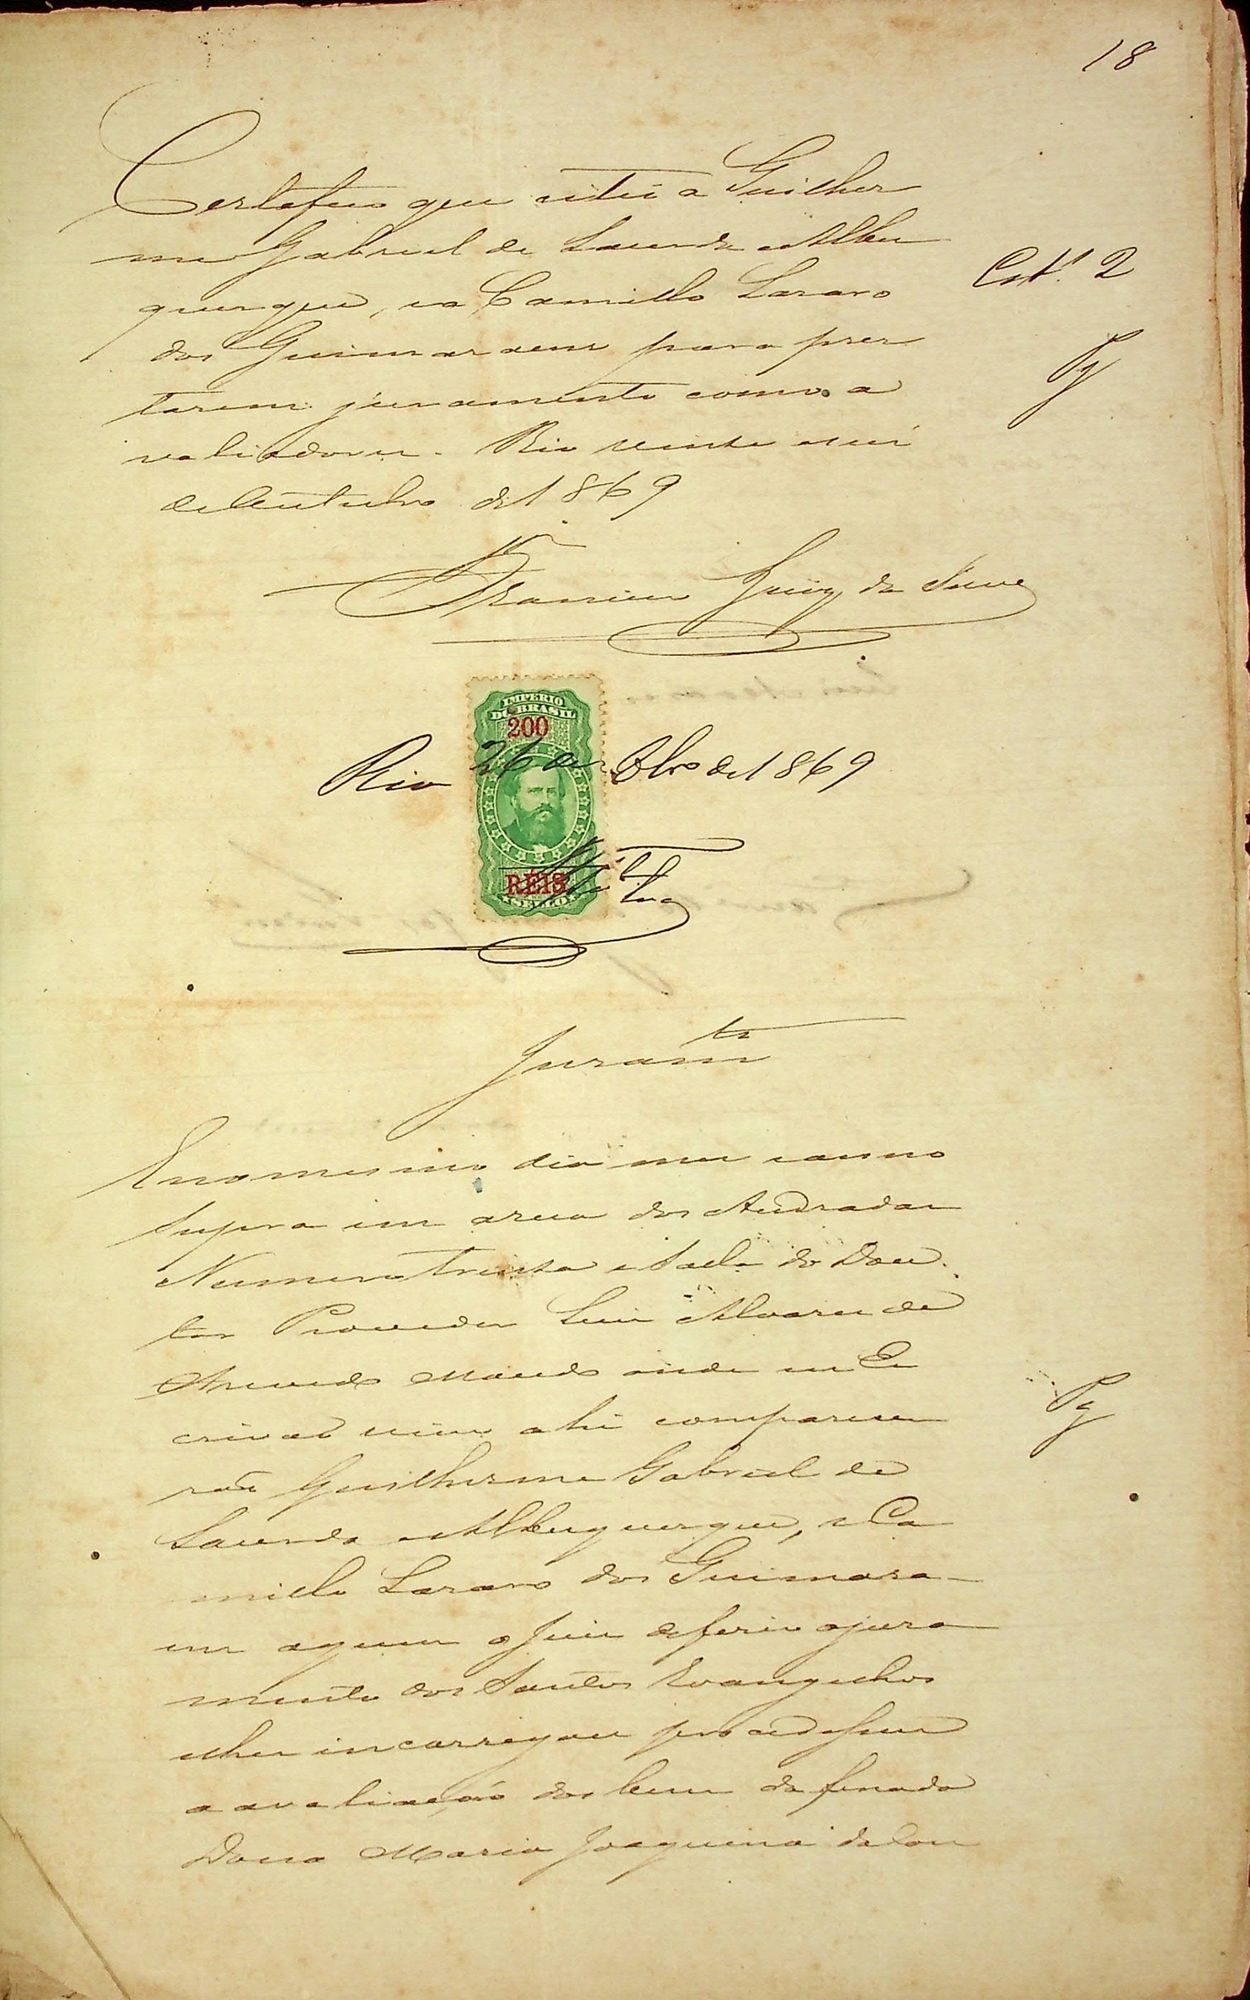 18
Certefico que citei a Guilher
me Gabriel de Lacerda e Albu
querque, e a Camillo Lazaro
dos Guimaraens para pres
tarem juramento como a
valiadores. Rio vinte e seis
de Outubro de 1869
Cit. 2
Pg
da Silva
IMPERIO
DO BRASIL
200
Rio 26 de 8bro de 1869
RÉIS
SELLO
Juramto
E no mesmo dia mes e anno
supra em a rua dos Andradas
Numero trinta e sala do Dou
tor Provedor Luis Alvares de
Azevedo Macedo onde eu Es
crivaõ vim ahi comparece
raõ Guilherme Gabriel de
Lacerda e Albuquerque, e Ca
millo Lazaro dos Guimara-
ens a quem o Juiz deferio o jura
mento dos Santos Evangelhos
e lhes incarregou procedessem
a avaliação dos bens da finada
Dona Maria Joaquina da Con
Pg